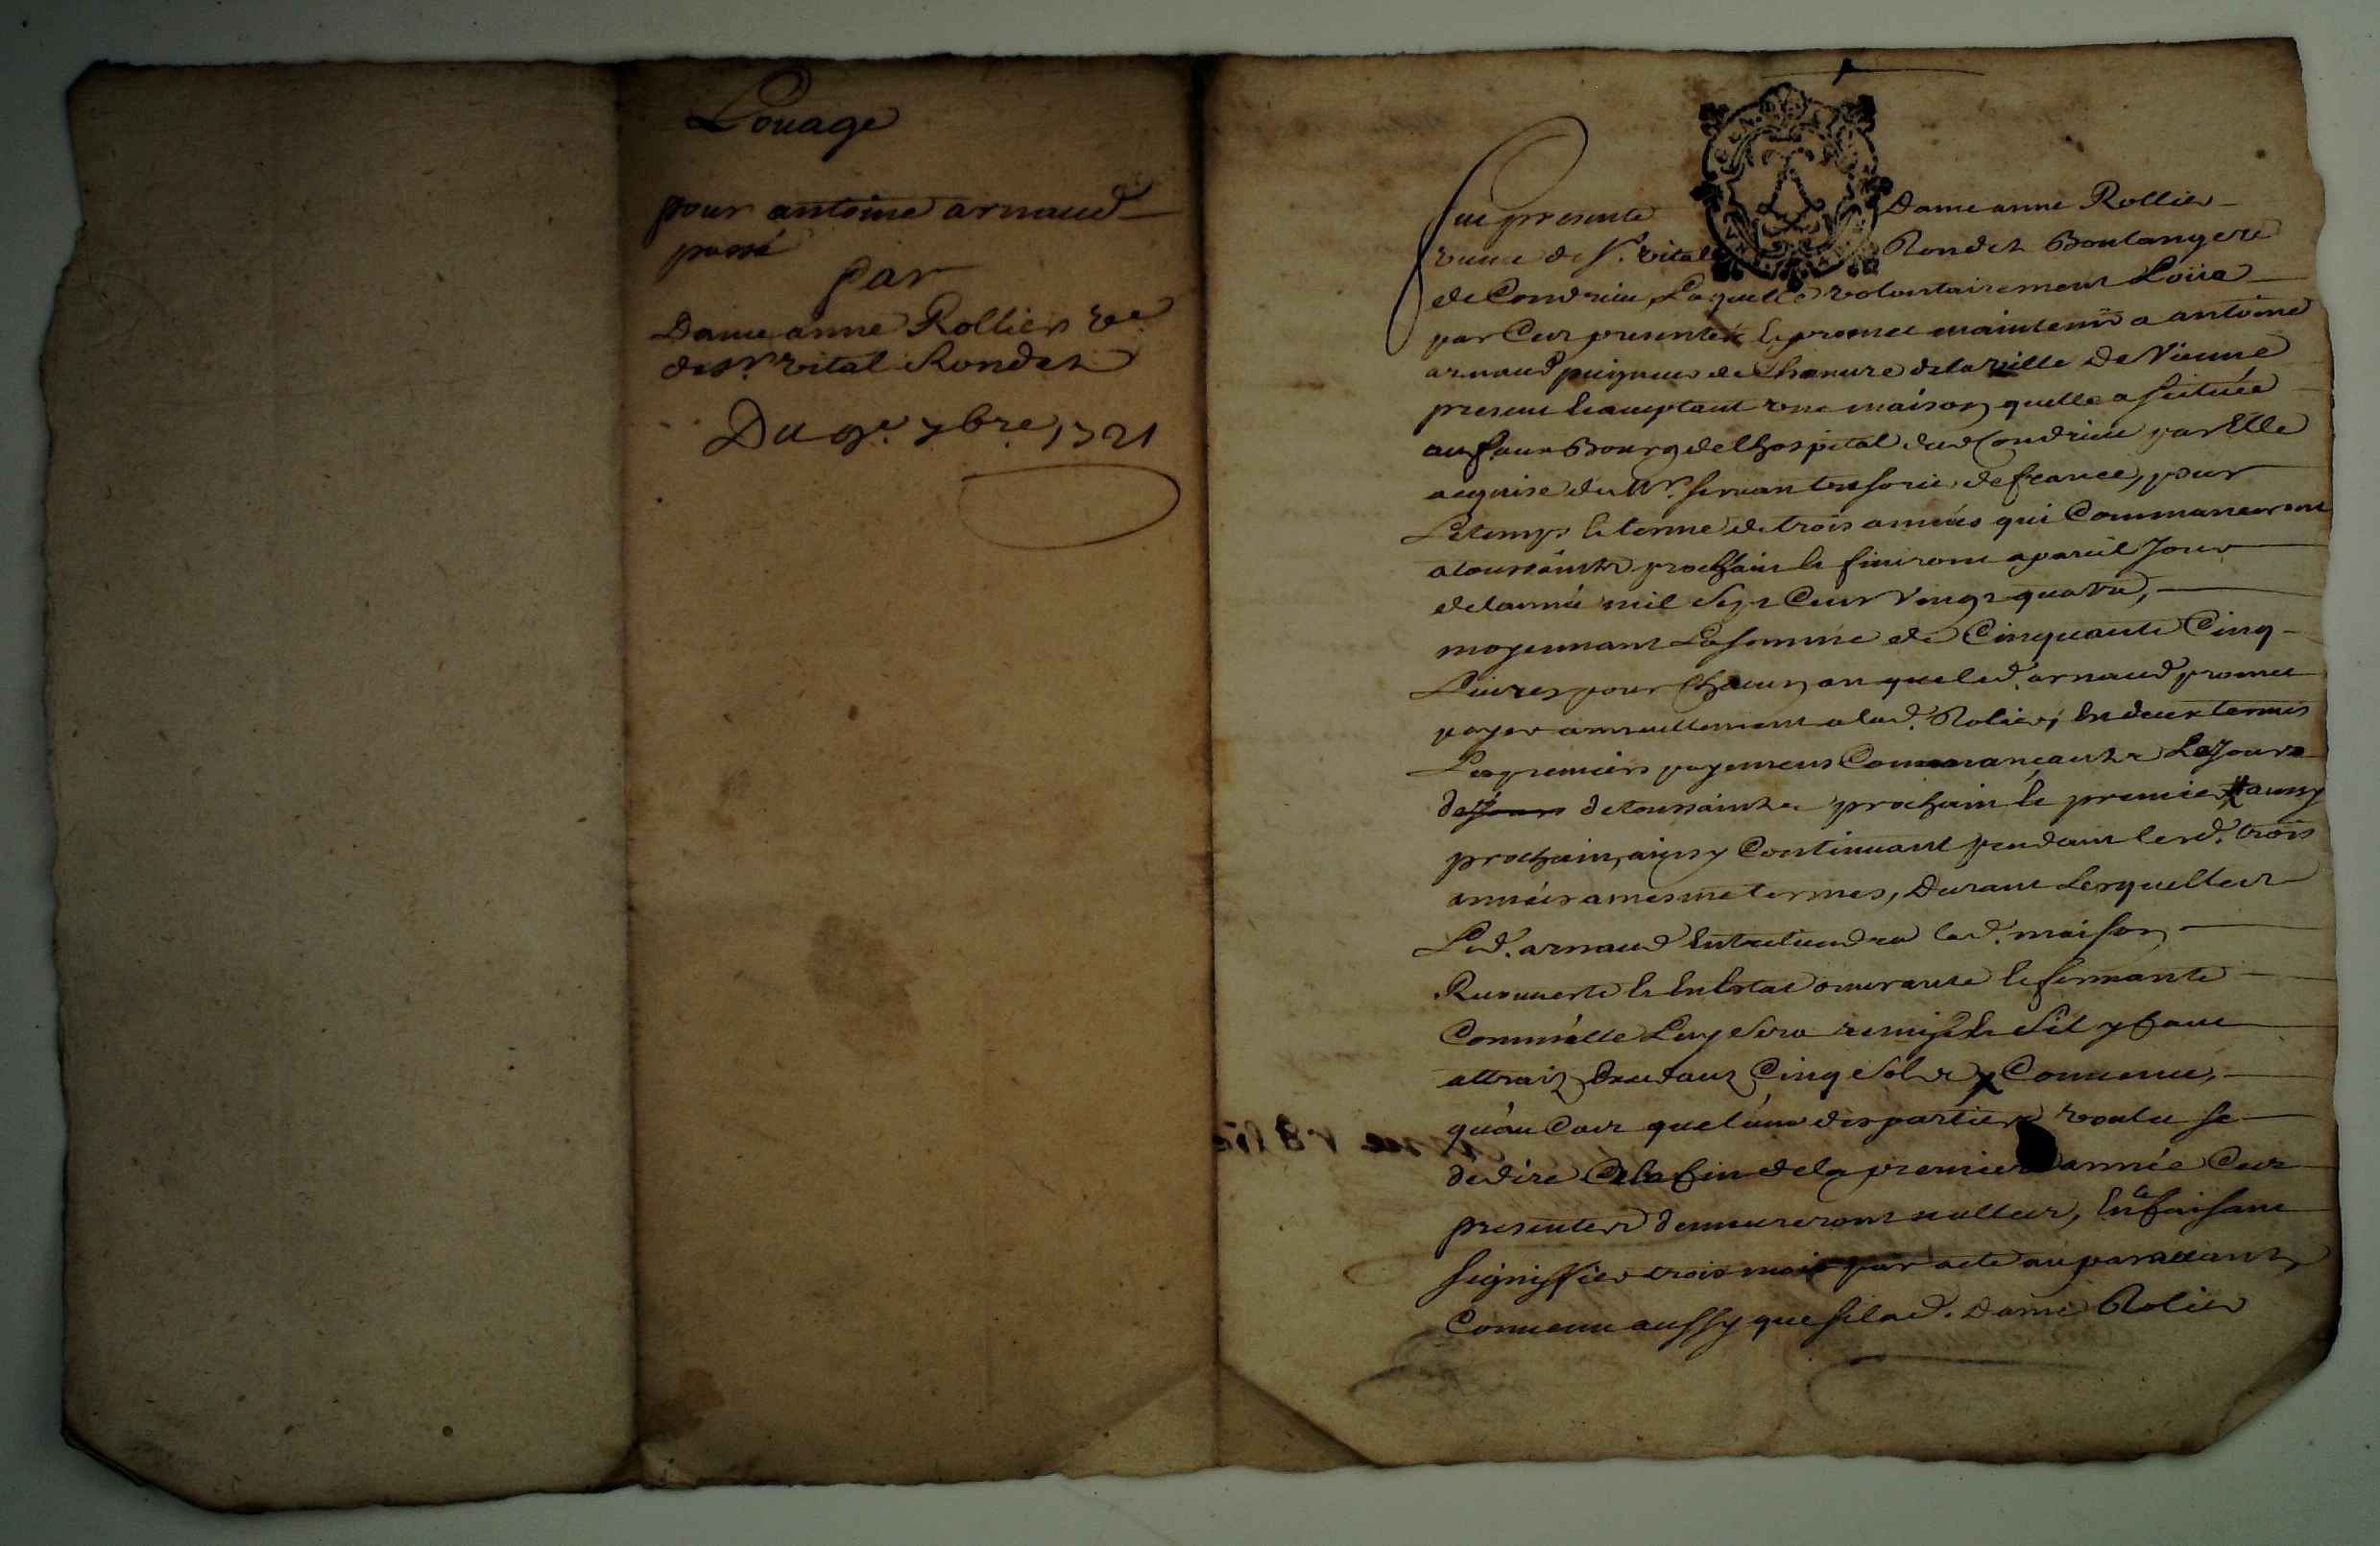 Louage
pour antoine arnaud
passé
par
Dame anne Rollier ve
de sr. vital Rondet
Du 9e. 7bre. 1721
Fut presente Dame anne Rollier
veuve de Sr. vital Rondet Boulangere
de Condrieu, Laquelle volontairement Loüe
par Ces presentes & promet maintenir a antoine
arnaud peigneur de Chanvre de la ville De Vienne
present & acceptant une maison quelle a scituée
au faux Bourg de lhospital dud Condrieu par Elle
acquise du Mr. servan tresorier de france, pour
Le temps & terme de trois années qui Commanceront
a toussaintz prochain & finiront a pareil Jour
de lannée mil Sept Centz Vingt quatre,
moyennant La somme de Cinquante Cinq
Livres pour Chacun an que led. arnaud promet
payer annuellement a lad. Rolier, En deux termes
Les premiers payemens Commançantz Le Jour
de jour de toussaintz prochain & premier
prochain, ainsy Continuant pendant lesd. trois
années a mesme termes, Durant Lesquelles
Led. arnaud Entretiendra lad. maison
Recouverte & En Estat ouvrante & fermante
Comme elle Luy Sera remise & Sil y faut
attrait Exedant Cinq Solz x Convenu,
qu'au Cas que l'une des parties voulu se
dedire a la fin de la premiere année Ces
presentes demeureront nulles, En le faisant
signiffier trois mois par acte auparavant,
Convenu aussy que si lad. Dame Rolier